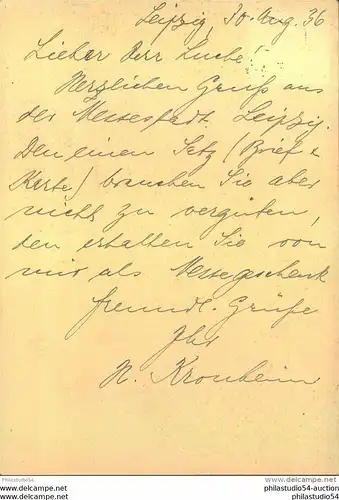 Leipzig, 30. Aug. 36
Lieber Herr Luche!
Herzlichen Gruß aus
der Messestadt Leipzig.
Den einen Satz (Brief &
Karte) brauchen Sie aber
nicht zu vergüten,
den erhalten Sie von
mir als Messegeschenk
freundl. Grüße
Ihr
N. Kronheim
Philastudio54
philastudio54-auction
philastudio54-auction.com